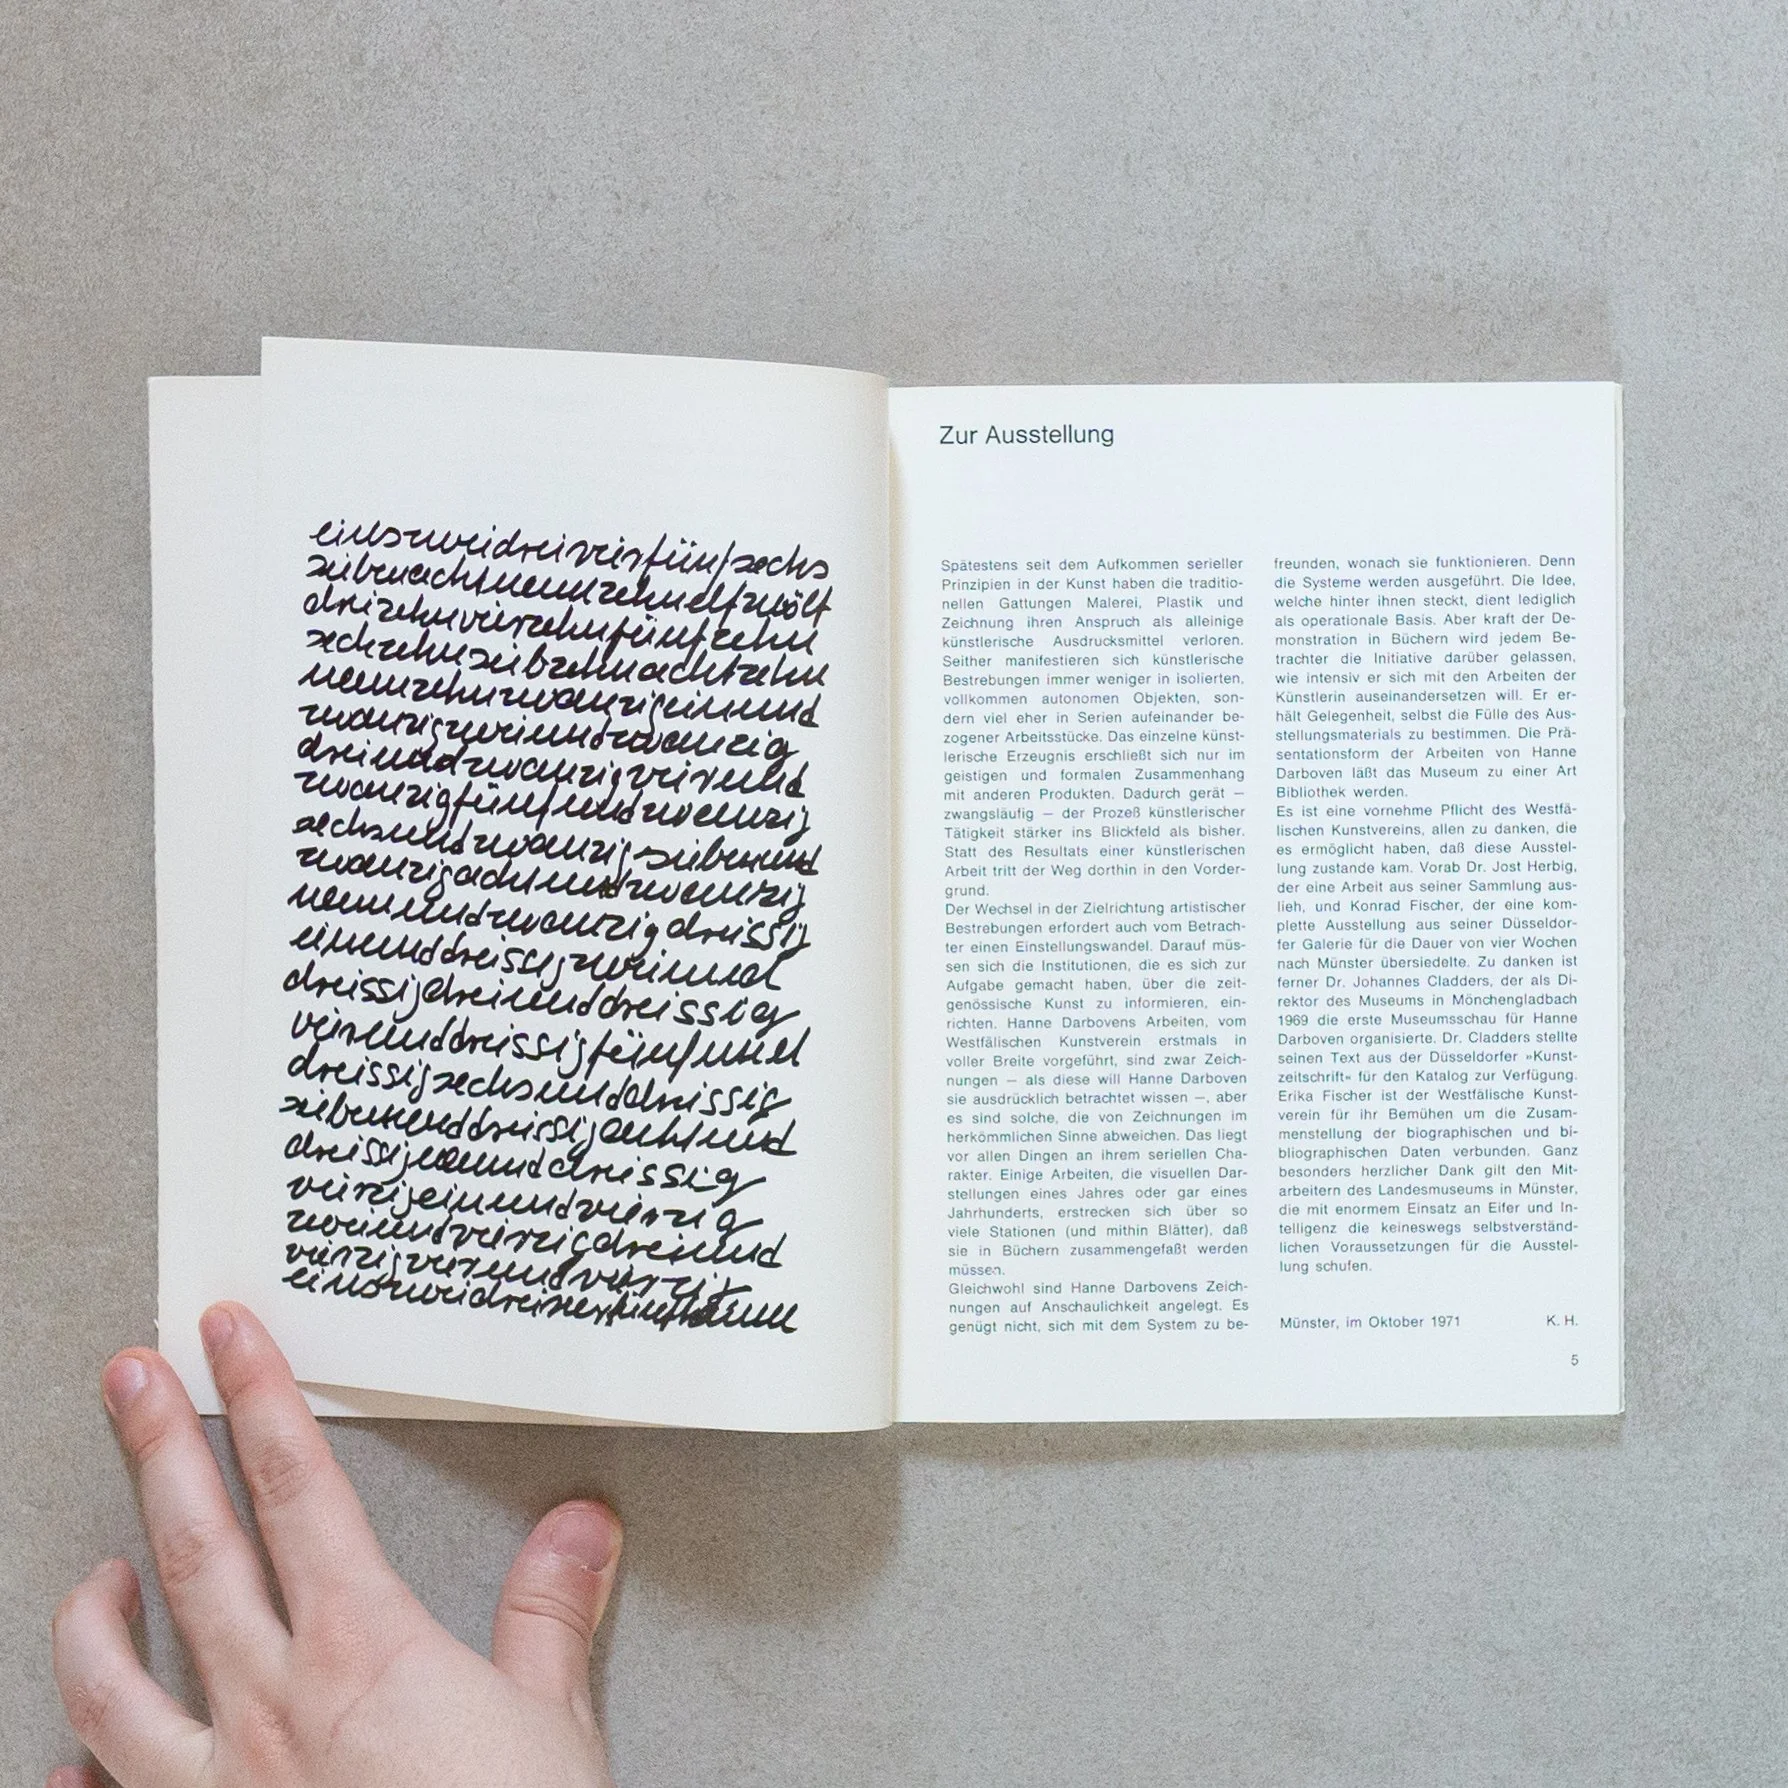 einszweidreivierfünfsechs
siebenachtneunzehnelfzwölf
dreizehnvierzehnfünfzehn
sechzehnsiebzehnachtzehn
neunzehnzwanzigeinund
zwanzigzweiundzwanzig
dreiundzwanzigvierund
zwanzigfünfundzwanzig
sechsundzwanzigsiebenund
zwanzigachtundzwanzig
neunundzwanzigdreissig
einunddreissigzweiund
dreissigdreiunddreissig
vierunddreissigfünfund
dreissigsechsunddreissig
siebenunddreissigachtund
dreissigneununddreissig
vierzigeinundvierzig
zweiundvierzigdreiund
vierzigvierundvierzig
Zur Ausstellung
Spätestens seit dem Aufkommen serieller
Prinzipien in der Kunst haben die traditio-
nellen Gattungen Malerei, Plastik und
Zeichnung ihren Anspruch als alleinige
künstlerische Ausdrucksmittel verloren.
Seither manifestieren sich künstlerische
Bestrebungen immer weniger in isolierten,
vollkommen autonomen Objekten, son-
dern viel eher in Serien aufeinander be-
zogener Arbeitsstücke. Das einzelne künst-
lerische Erzeugnis erschließt sich nur im
geistigen und formalen Zusammenhang
mit anderen Produkten. Dadurch gerät —
zwangsläufig — der Prozeß künstlerischer
Tätigkeit stärker ins Blickfeld als bisher.
Statt des Resultats einer künstlerischen
Arbeit tritt der Weg dorthin in den Vorder-
grund.
Der Wechsel in der Zielrichtung artistischer
Bestrebungen erfordert auch vom Betrach-
ter einen Einstellungswandel. Darauf müs-
sen sich die Institutionen, die es sich zur
Aufgabe gemacht haben, über die zeit-
genössische Kunst zu informieren, ein-
richten. Hanne Darbovens Arbeiten, vom
Westfälischen Kunstverein erstmals in
voller Breite vorgeführt, sind zwar Zeich-
nungen — als diese will Hanne Darboven
sie ausdrücklich betrachtet wissen —, aber
es sind solche, die von Zeichnungen im
herkömmlichen Sinne abweichen. Das liegt
vor allen Dingen an ihrem seriellen Cha-
rakter. Einige Arbeiten, die visuellen Dar-
stellungen eines Jahres oder gar eines
Jahrhunderts, erstrecken sich über so
viele Stationen (und mithin Blätter), daß
sie in Büchern zusammengefaßt werden
müssen.
Gleichwohl sind Hanne Darbovens Zeich-
nungen auf Anschaulichkeit angelegt. Es
genügt nicht, sich mit dem System zu be-
freunden, wonach sie funktionieren. Denn
die Systeme werden ausgeführt. Die Idee,
welche hinter ihnen steckt, dient lediglich
als operationale Basis. Aber kraft der De-
monstration in Büchern wird jedem Be-
trachter die Initiative darüber gelassen,
wie intensiv er sich mit den Arbeiten der
Künstlerin auseinandersetzen will. Er er-
hält Gelegenheit, selbst die Fülle des Aus-
stellungsmaterials zu bestimmen. Die Prä-
sentationsform der Arbeiten von Hanne
Darboven läßt das Museum zu einer Art
Bibliothek werden.
Es ist eine vornehme Pflicht des Westfä-
lischen Kunstvereins, allen zu danken, die
es ermöglicht haben, daß diese Ausstel-
lung zustande kam. Vorab Dr. Jost Herbig,
der eine Arbeit aus seiner Sammlung aus-
lieh, und Konrad Fischer, der eine kom-
plette Ausstellung aus seiner Düsseldor-
fer Galerie für die Dauer von vier Wochen
nach Münster übersiedelte. Zu danken ist
ferner Dr. Johannes Cladders, der als Di-
rektor des Museums in Mönchengladbach
1969 die erste Museumsschau für Hanne
Darboven organisierte. Dr. Cladders stellte
seinen Text aus der Düsseldorfer »Kunst-
zeitschrift« für den Katalog zur Verfügung.
Erika Fischer ist der Westfälische Kunst-
verein für ihr Bemühen um die Zusam-
menstellung der biographischen und bi-
bliographischen Daten verbunden. Ganz
besonders herzlicher Dank gilt den Mit-
arbeitern des Landesmuseums in Münster,
die mit enormem Einsatz an Eifer und In-
telligenz die keineswegs selbstverständ-
lichen Voraussetzungen für die Ausstel-
lung schufen.
Münster, im Oktober 1971 K. H.
5